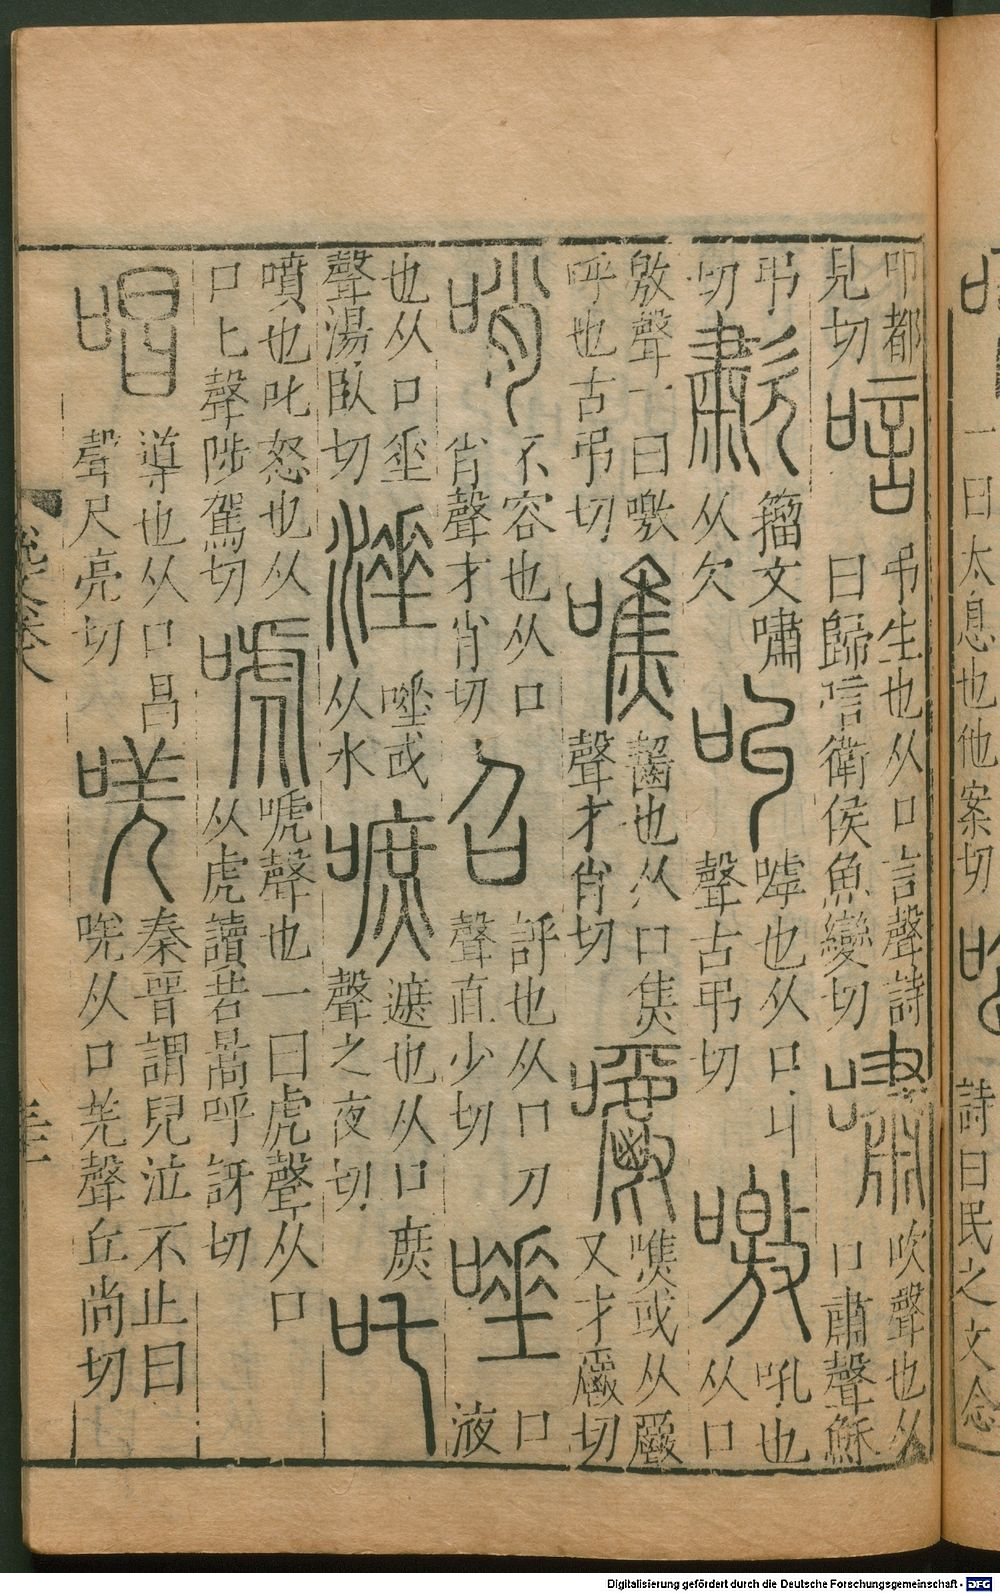 一曰太息也他案切 唸 詩曰民之文念
叩都見切 唁 弔生也从口言聲詩曰歸唁衛侯魚變切 嘯 吹聲也从口肅聲穌
弔切 歗 籒文嘯从欠 叫 嘑也从口丩聲古弔切 噭 吼也从口
敫聲一曰噭呼也古弔切 噍 齧也从口焦聲才肖切 嚼 噍或从爵又才爵切
哨 不容也从口肖聲才肖切 召 評也从口刀聲直少切 唾 口液
也从口坐聲湯臥切 涶 唾或从水 嗻 遮也从口庶聲之夜切 吒
噴也叱怒也从口乇聲陟駕切 唬 嗁聲也一曰虎聲从口从虎讀若暠呼訝切
唱 導也从口昌聲尺亮切 唴 秦晉謂兒泣不止曰唴从口羌聲丘尚切
說文卷八
Digitalisierung gefördert durch die Deutsche Forschungsgemeinschaft - DFG